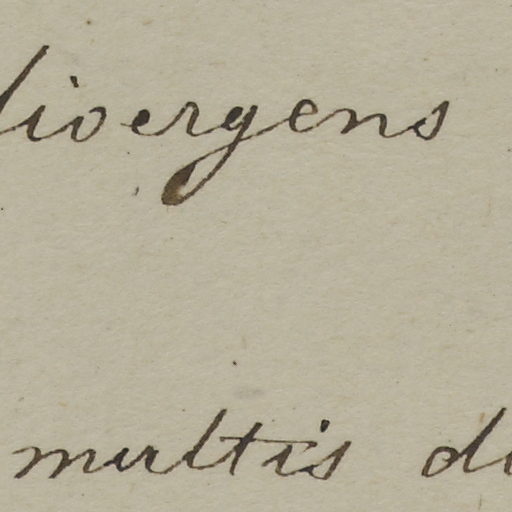 divergens
multis